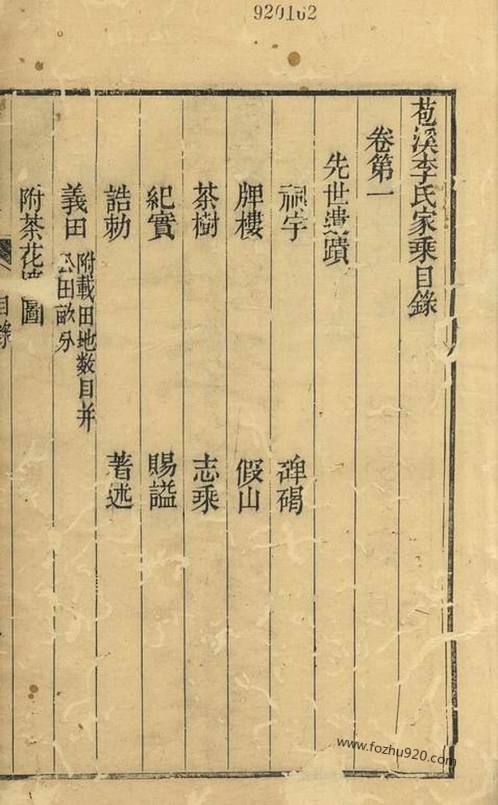 920102
苞溪李氏家乗目錄
卷第一
先世遺蹟
祠宇 碑碣
牌樓 假山
茶樹 志乗
紀實 賜謚
誥勅 著述
義田 附載田地数目并公田畝分
附茶花 圖
目錄
www.fozhu920.com